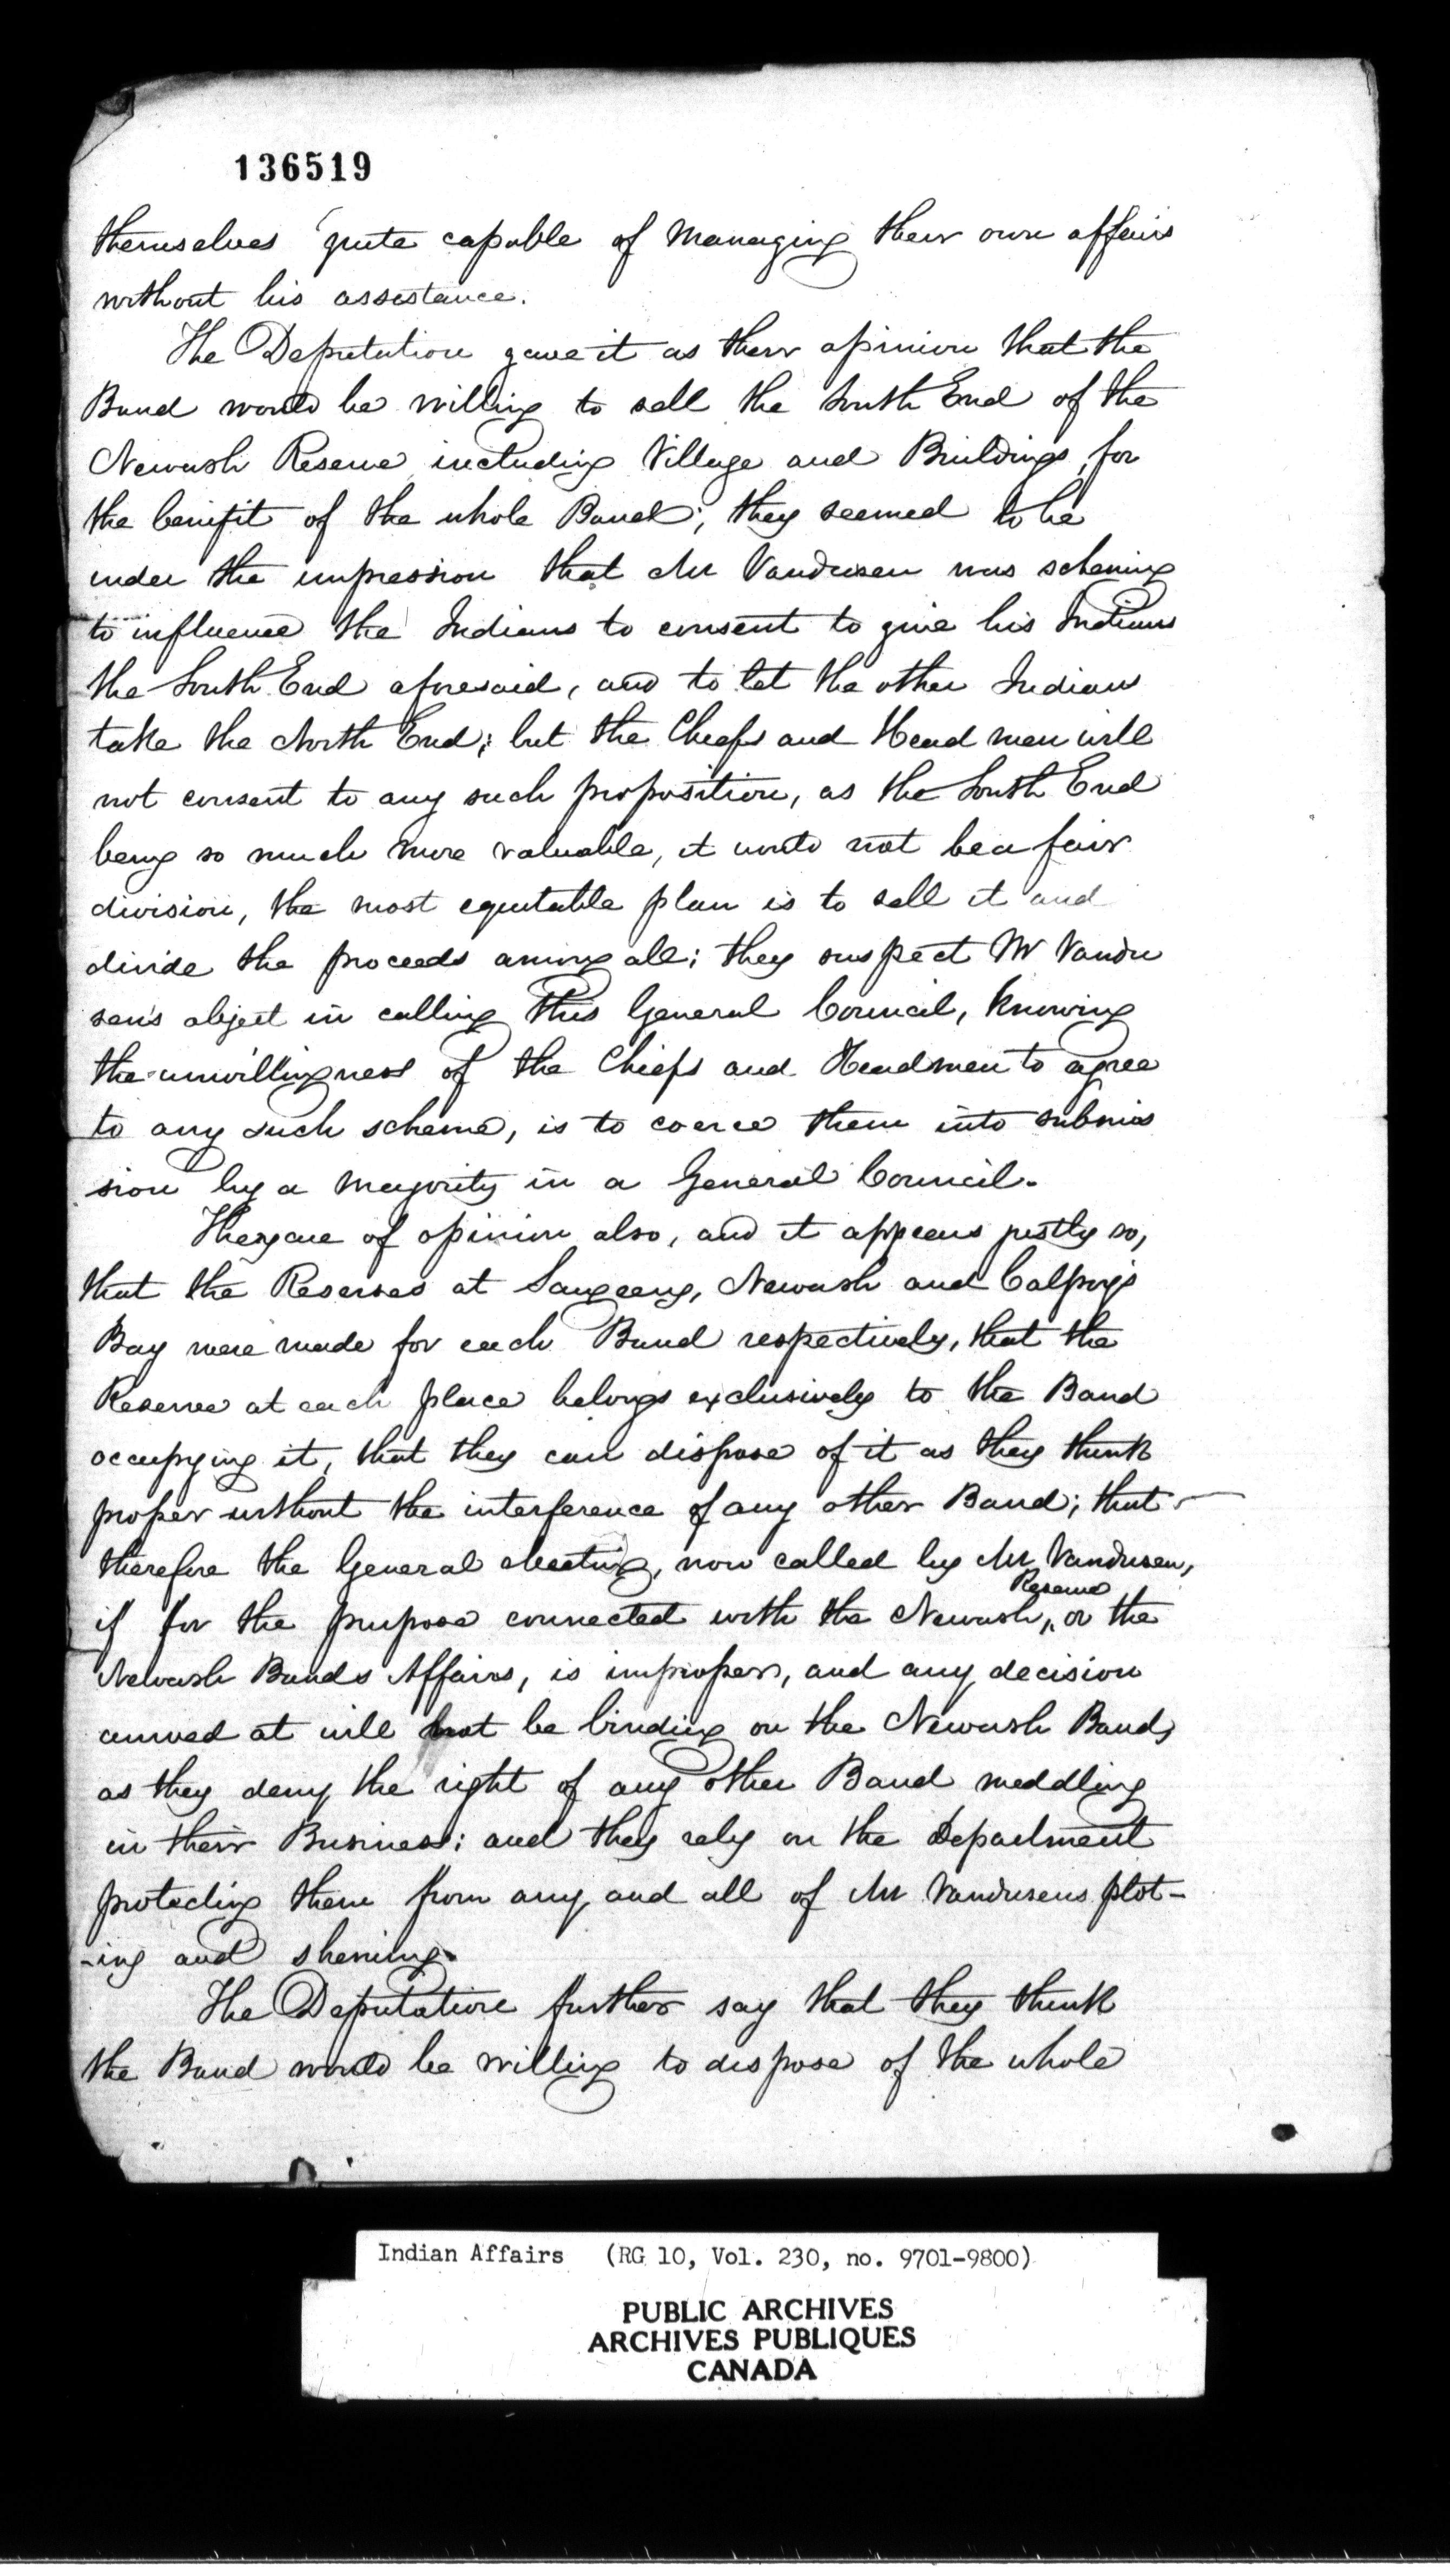 136519
themselves quite capable of Managing their own affairs
without his assistance.
The Deputation gave it as their opinion that the
Band would be willing to sell the South End of the
Newash Reserve including Village and Buildings, for
the benifit of the whole Band; they seemed to be
under the impression that Mr Vandusen was scheming
to influence the Indians to consent to give his Indians
the South End aforesaid, and to let the other Indians
take the North End; but the Chiefs and Head men will
not consent to any such proposition, as the South End
being so much more valuable, it would not be a fair
division, the most equitable plan is to sell it and
divide the proceeds among all; they suspect Mr Vandu
sen's object in calling this General Council, knowing
the unwillingness of the Chiefs and Headmen to agree
to any such scheme, is to coerce them into submis
sion by a Majority in a General Council.
They are of opinion also, and it appears justly so,
that the Reserves at Saugeeng, Newash and Colpoy's
Bay were made for each Band respectively, that the
Reserve at each place belongs exclusively to the Band
occupying it, that they can dispose of it as they think
proper without the interference of any other Band; that
therefore the General Meeting, now called by Mr Vandusen,
Reserve
if for the purpose connected with the Newash, or the
Newash Bands Affairs, is improper, and any decision
arrived at will not be binding on the Newash Band,
as they deny the right of any other Band meddling
in their Business; and they rely on the Department
protecting them from any and all of Mr Vandusens plot-
-ing and sheming.
The Deputation further say that they think
the Band would be willing to dispose of the whole
Indian Affairs (RG 10, Vol. 230, no. 9701-9800)
PUBLIC ARCHIVES
ARCHIVES PUBLIQUES
CANADA